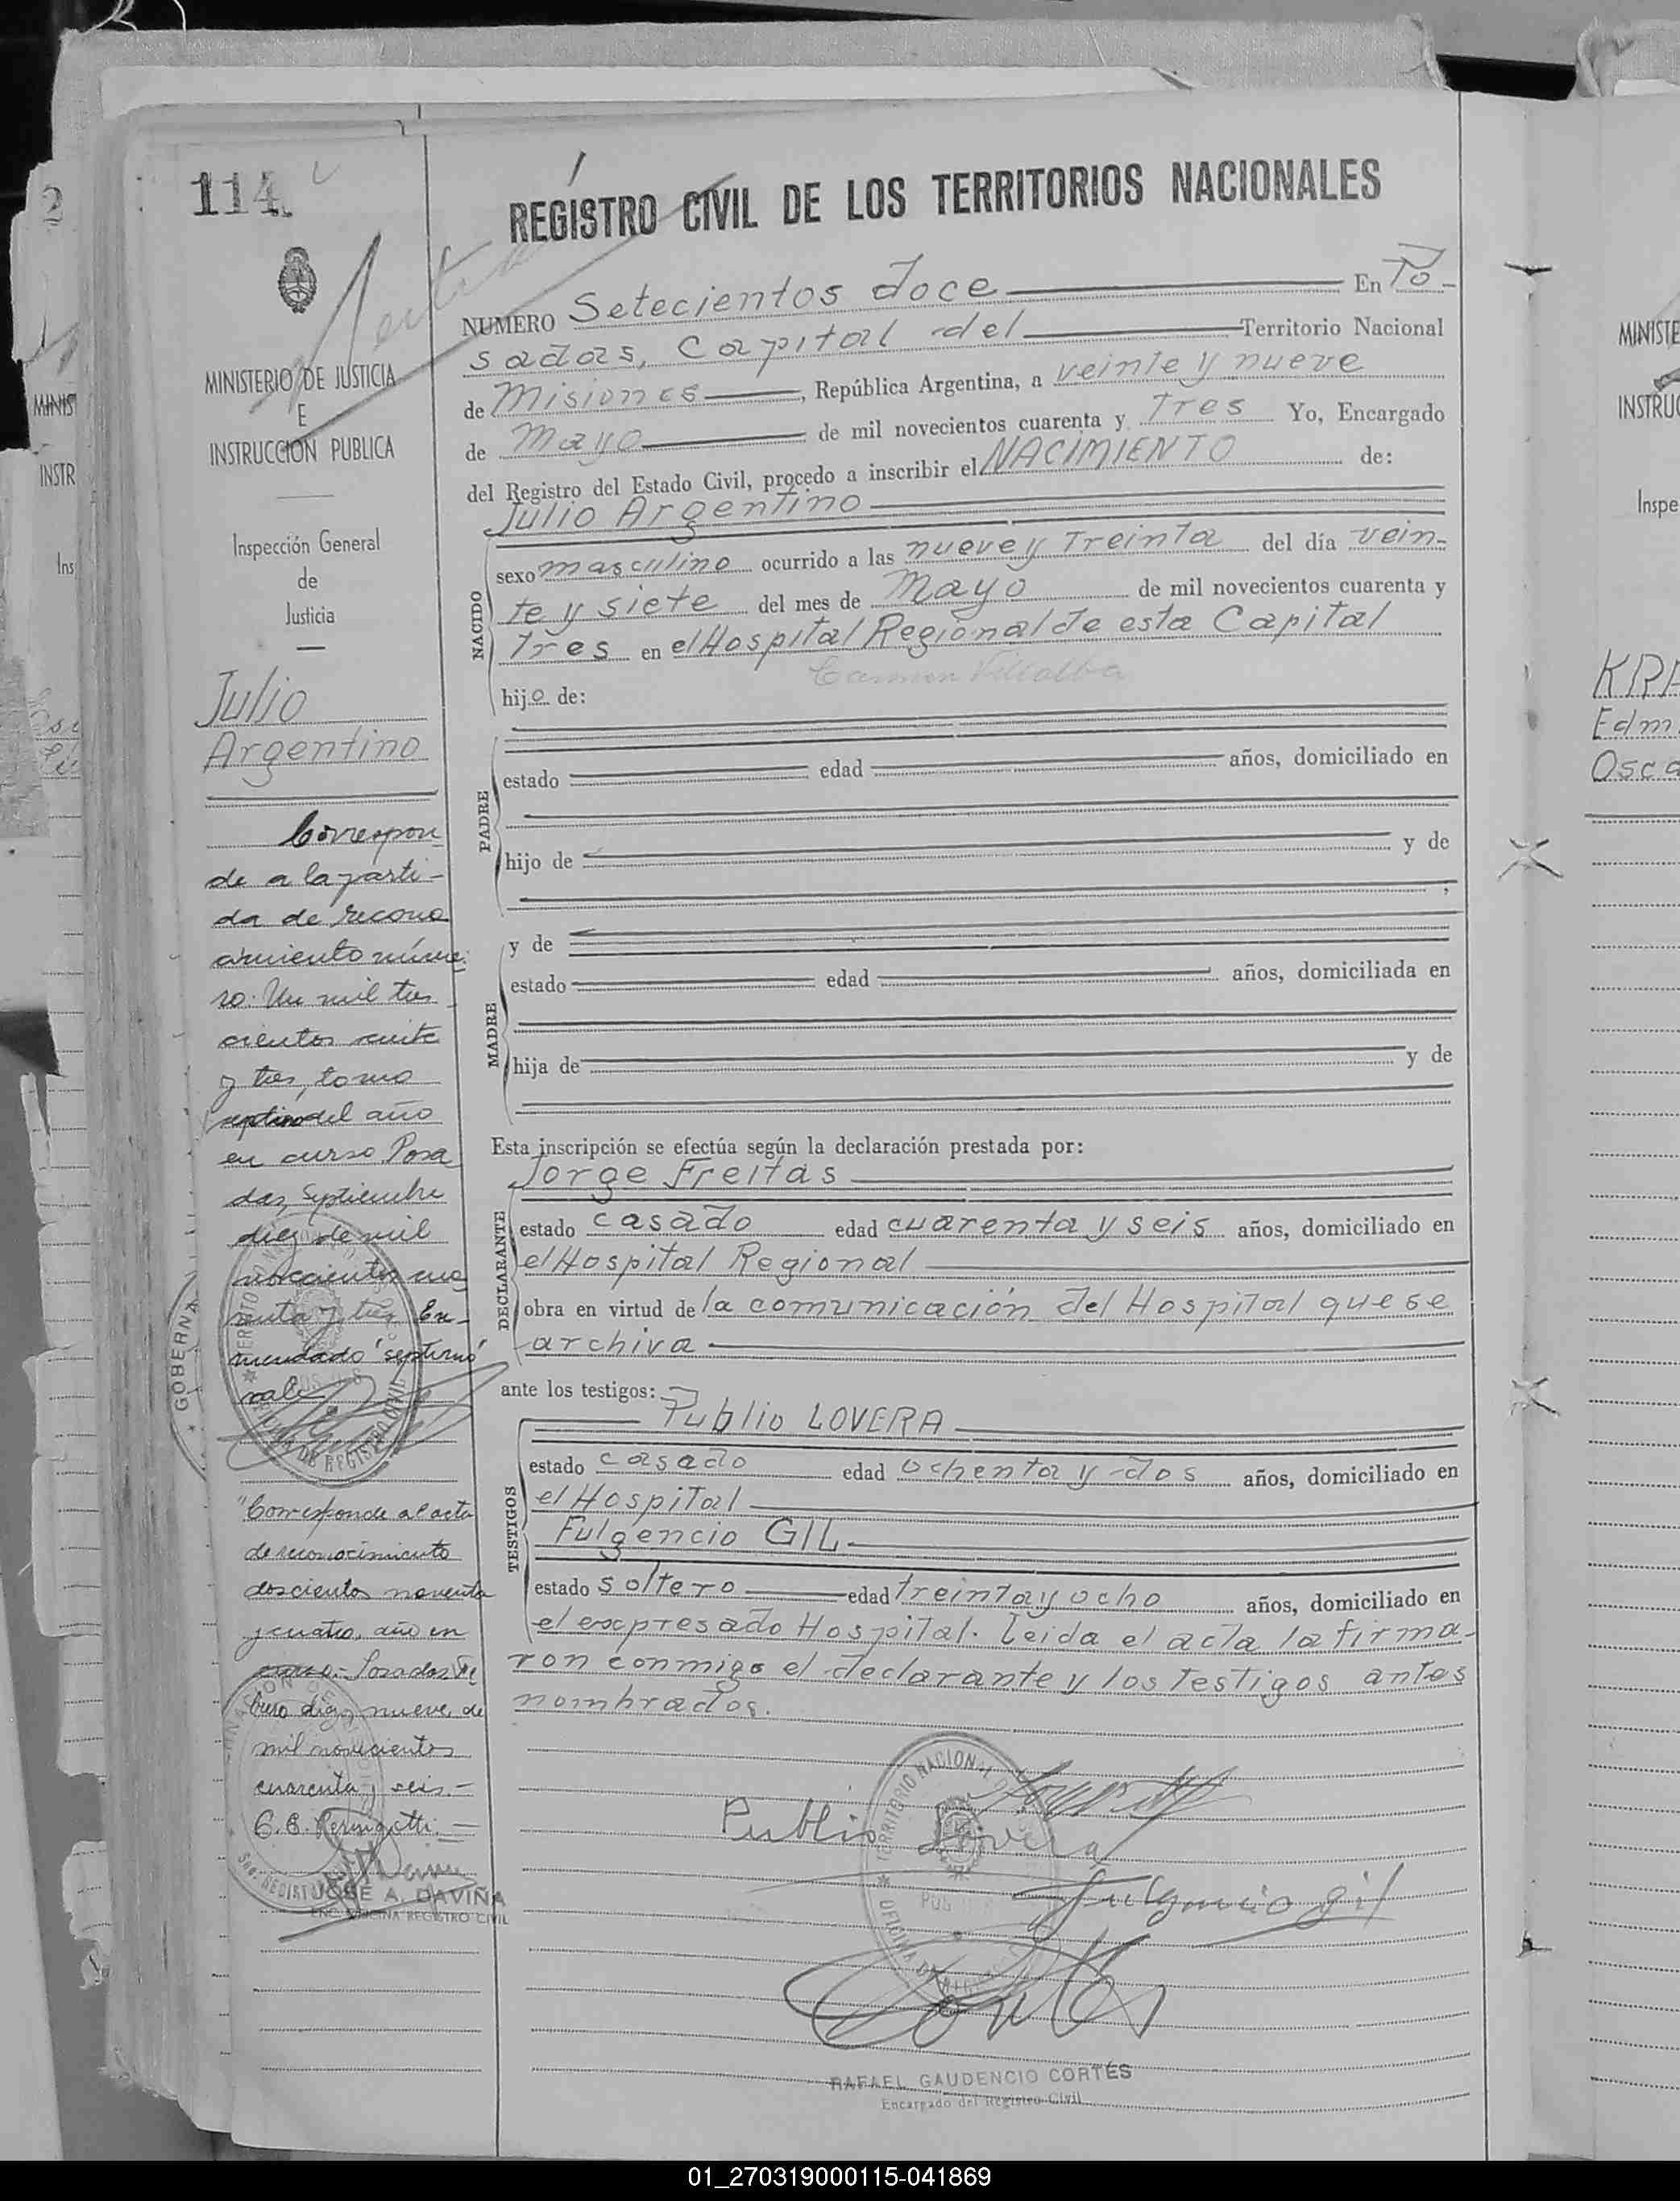 114
REGISTRO CIVIL DE LOS TERRITORIOS NACIONALES
MINISTERIO DE JUSTICIA
E
INSTRUCCION PUBLICA
Inspección General
de
Justicia
Julio
Argentino
Correspon
de a la parti-
da de recono
cimiento núme
ro: Un mil tres
cientos veinte
y tres, tomo
septimo del año
en curso Posa
das, Septiembre
diez de mil
novecientos cua
renta y tres En-
mendado "septimo"
vale
"Corresponde al acta
de reconocimiento
doscientos noventa
y cuatro, año en
curso.- Posadas Fe
brero diez y nueve de
mil novecientos
cuarenta y seis.-
JOSE A. DAVIÑA
ENC. OFICINA REGISTRO CIVIL
NUMERO Setecientos doce En Po-
sadas, Capital del Territorio Nacional
de Misiones, República Argentina, a veinte y nueve
de Mayo de mil novecientos cuarenta y tres Yo, Encargado
del Registro del Estado Civil, procedo a inscribir el NACIMIENTO de:
Julio Argentino
NACIDO
sexo masculino ocurrido a las nueve y Treinta del día vein-
te y siete del mes de Mayo de mil novecientos cuarenta y
tres en el Hospital Regional de esta Capital
Carmen Villalba
hijo de:
PADRE
estado edad años, domiciliado en
hijo de y de
,
MADRE
y de
estado edad años, domiciliada en
hija de y de
Esta inscripción se efectúa según la declaración prestada por:
Jorge Freitas
DECLARANTE
estado casado edad cuarenta y seis años, domiciliado en
el Hospital Regional
obra en virtud de la comunicación del Hospital que se
archiva
ante los testigos:
Publio LOVERA
TESTIGOS
estado casado edad ochenta y dos años, domiciliado en
el Hospital
Fulgencio GIL
estado soltero edad treinta y ocho años, domiciliado en
el expresado Hospital. Leida el acta la firma-
ron conmigo el declarante y los testigos antes
nombrados.
TERRITORIO NACIONAL
Publio Lovera
Fulgencio Gil
RAFAEL GAUDENCIO CORTÉS
Encargado del Registro Civil
MINISTE
INSTRUC
Inspe
KRA
Edm
Osca
01_270319000115-041869